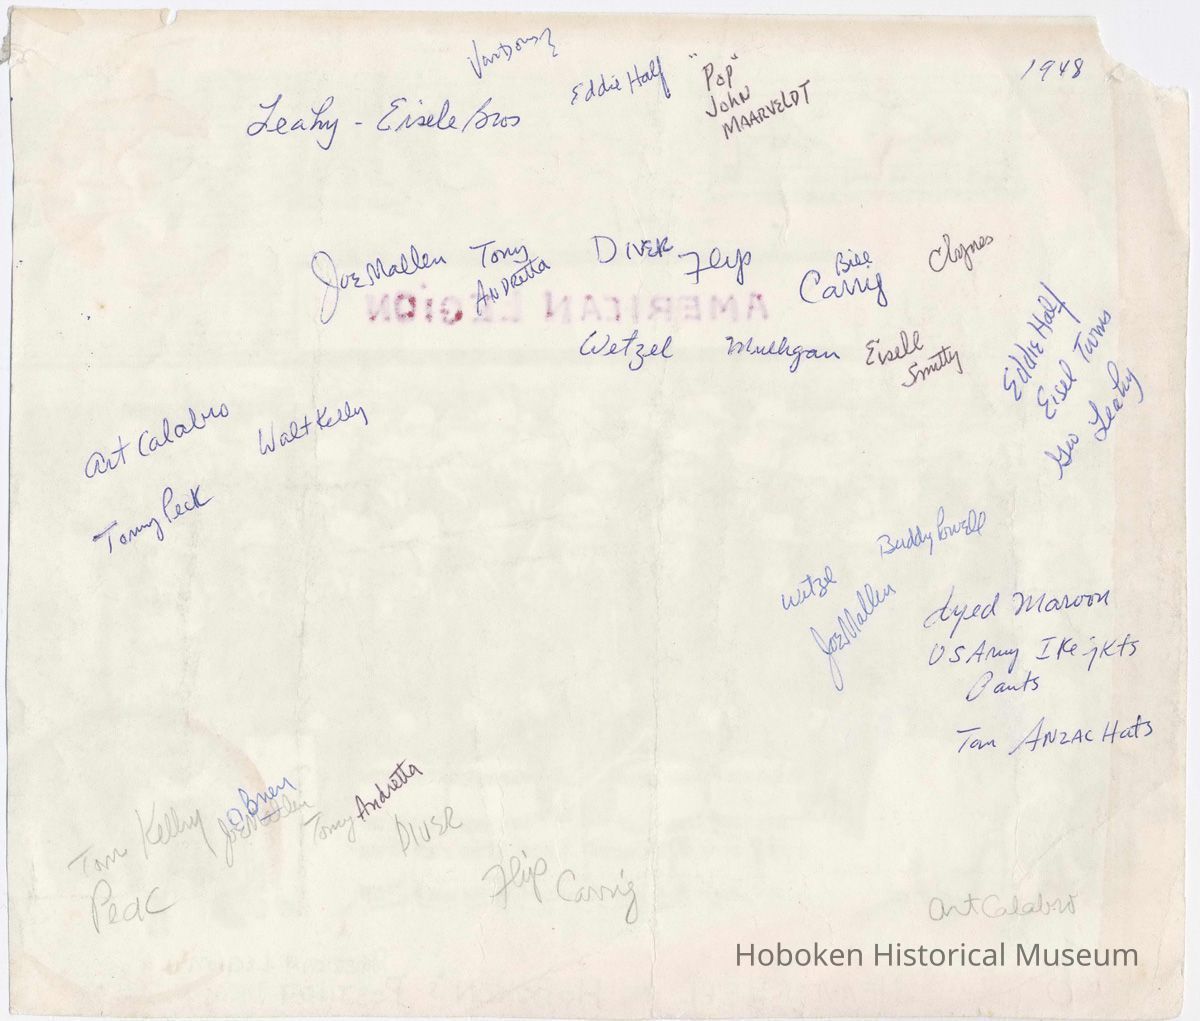 1948
Eddie Half
"Pop"
John
MAARVELDT
Leahy - Eisele Bros
Joe Mallen
Tony
ANDRETTA
DIVER
Flip
Bill
Carrig
Clynes
AMERICAN LEGION
Wetzel
Mulligan
Eisele
Smitty
Eddie Half
Eisel Twins
Geo Leahy
Art Calabro
Walt Kelly
Tommy Peck
Buddy Powell
Wetzel
Joe Mallen
dyed Maroon
US Army Ike jkts
Pants
Tan ANZAC Hats
Tom Kelly
O'Brien
Joe Mallen
Tony Andretta
DIVER
Peck
Flip
Carrig
Art Calabro
Hoboken Historical Museum